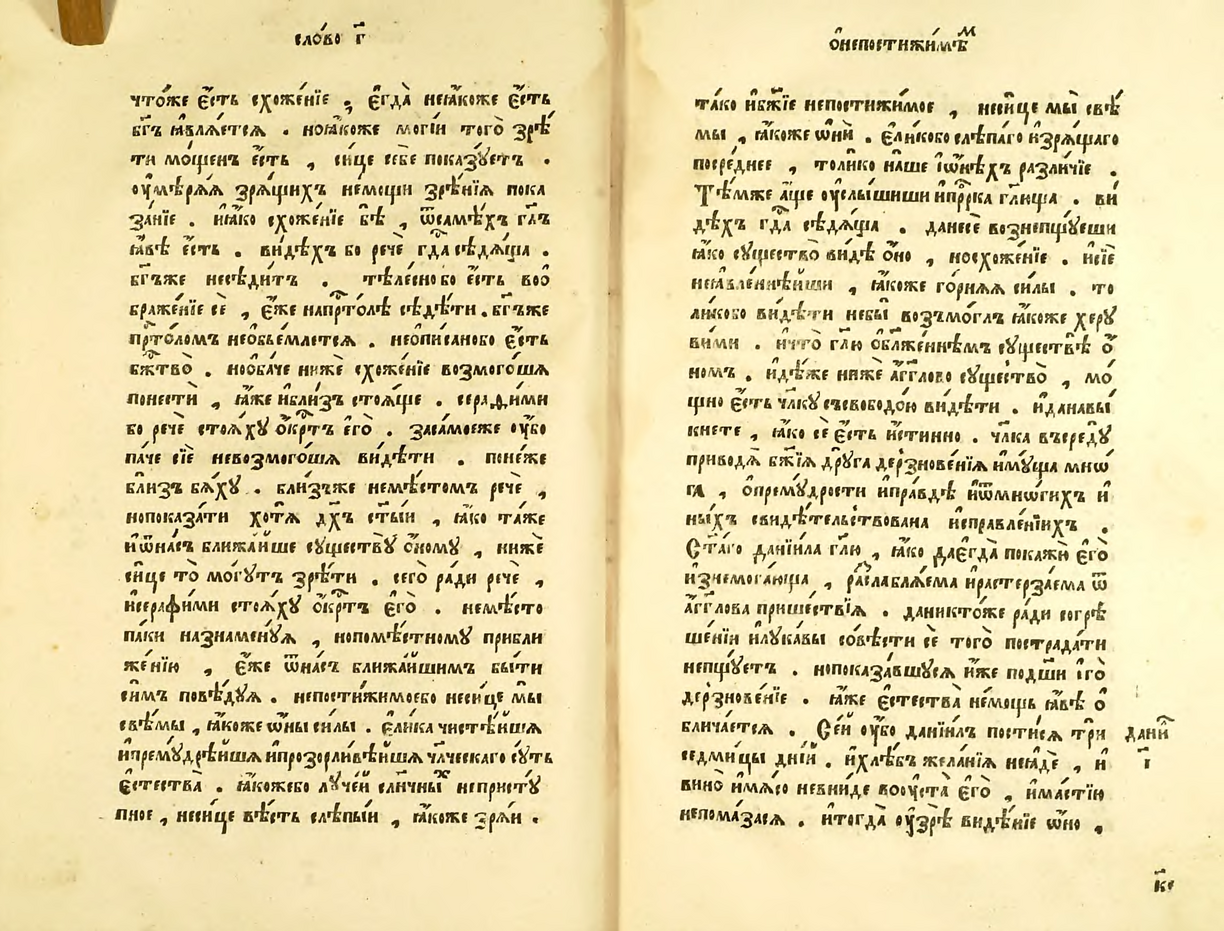 сло́во г҃
что́же є҆́сть схоже́нїе , є҆гда̀ неꙗ҆́коже є҆́сть
бг҃ъ ꙗ҆влѧ́етсѧ . ноꙗ҆́коже могі́и того̀ зрѣ́
ти мо́щенъ є҆́сть , си́це себѐ пока́зꙋетъ .
ᲂу҆мѣ́рѧѧ зрѧ́щихъ не́мощи зрѣ́нїѧ пока
за́нїе . и҆ꙗ҆́ко схоже́нїе бѣ̀ , ѿсамѣ́хъ гл҃ъ
ꙗ҆́вѣ є҆́сть . ви́дѣхъ бо речѐ гд҇а сѣдѧ́ща .
бг҃ъже несѣди́тъ . тѣле́сно бо є҆́сть воѡ
браже́нїе сѐ , є҆́же напрⷭ҇то́лѣ сѣдѣ́ти . бг҃ъже
прⷭ҇то́ломъ необъе́млетсѧ . неопи́санобо є҆́сть
бж҃тво̀ . нооба́че нижѐ схоже́нїе возмого́шѧ
понестѝ , ꙗ҆́же и҆бли́зъ стоѧ́ще . серафи́ми
бо речѐ стоѧ́хꙋ ѻ҆́крⷭ҇тъ є҆го̀ . засамоеже ᲂу҆́бо
па́че сїѐ невозмого́шѧ ви́дѣти . поне́же
бли́зъ бѧ́хꙋ . бли́зъже немѣ́стомъ речѐ ,
нопоказа́ти хотѧ̀ дх҃ъ ст҃ы́и , ꙗ҆́ко та́же
и҆ѿна́съ ближа́йше сꙋществꙋ̀ ѻ҆́номꙋ , нижѐ
си́це то̀ мо́гꙋтъ зрѣ́ти . сего̀ ра́ди речѐ ,
и҆серафи́ми стоѧ́хꙋ ѻ҆́крⷭ҇тъ є҆го̀ . немѣ́сто
па́ки назна́менꙋѧ , нопомѣ́стномꙋ прибли
же́нїю , є҆́же ѿна́съ ближа́йшимъ бы́ти
си́мъ повѣ́дꙋѧ . непостижи́моебо неси́це мы̀
свѣ́мы , ꙗ҆́коже ѡ҆ны си́лы . є҆ли́ка чистѣ́йшѧ
и҆премꙋдрѣ́йшѧ и҆прозорли́вѣйшѧ чл҃ческаго сꙋ́ть
є҆стества̀ . ꙗ҆́кожебо лꙋче́й сл҃нчныⷯ непристꙋ́
пное , неси́це вѣ́сть слѣпы́и , ꙗ҆́коже зрѧ́и .
ѻ҆непостижи́мѣⷨ
та́ко и҆бж҃їе непостижи́мое , неси́це мы̀ свѣ́
мы , ꙗ҆́коже ѡ҆нѝ . є҆ли́кобо слѣпа́го и҆зрѧ́щаго
посре́днее , толи́ко на́ше і҆ѡ҆нѣ́хъ разли́чїе .
Тѣ́мже а҆́ще ᲂу҆слы́шиши и҆прⷪ҇рка гл҃юща . ви́
дѣхъ гд҇а сѣдѧ́ща . данесѐ вознепщꙋ́еши
ꙗ҆́ко сꙋщество̀ ви́дѣ ѻ҆́но , носхоже́нїе . и҆сїѐ
неꙗ҆вле́ннѣйши , ꙗ҆́коже го́рнѧѧ си́лы . то
ли́кобо ви́дѣти небы̀ возъмо́глъ ꙗ҆́коже херꙋ
ви́ми . и҆что̀ гл҃ю ѻ҆бл҃же́ннѣмъ сꙋществѣ̀ ѻ҆́
номъ . и҆дѣ́же нижѐ а҆́гг҃лово сꙋщество̀ , мо́
щно є҆́сть чл҃кꙋ съсвобо́дою ви́дѣти . и҆данавы́
кнете , ꙗ҆́ко сѐ є҆́сть и҆́стинно . чл҃ка въсредꙋ̀
приводѧ̀ бж҃їѧ дрꙋ́га дерзнове́нїѧ и҆мꙋ́ща мнѡ́
га , ѻ҆премꙋ́дрости и҆пра́вдѣ и҆ѿмнѡ́гихъ и҆
ны́хъ свидѣ́тельствована и҆справле́нїихъ .
Ст҃а́го данїи́ла гл҃ю , ꙗ҆́ко даєгда̀ покажꙋ̀ є҆го̀
и҆знемога́юща , разслаблѧ́ема и҆растерза́ема ѿ
а҆́гг҃лова прише́ствїѧ . даникто́же ра́ди согрѣ
ше́нїи и҆лꙋка́вы со́вѣсти сѐ того̀ пострада́ти
непщꙋ́етъ . нопоказа́вшꙋсѧ и҆́же подш҃и і҆го̀
дерзнове́нїе . ꙗ҆́же є҆стества̀ не́мощь ꙗ҆́вѣ ѻ҆
блича́етсѧ . Се́й ᲂу҆́бо данїи́лъ пости́сѧ трѝ
седми́цы дні́й . и҆хлѣ́бъ жела́нїѧ неꙗ҆дѐ , и҆
вино̀ и҆мѧ́со невни́де воᲂу҆ста̀ є҆го̀ , и҆ма́стїю
непома́засѧ . и҆тогда̀ ᲂу҆зрѣ̀ видѣ́нїе ѡ҆́но ,
дани҃
і҃
к҃е